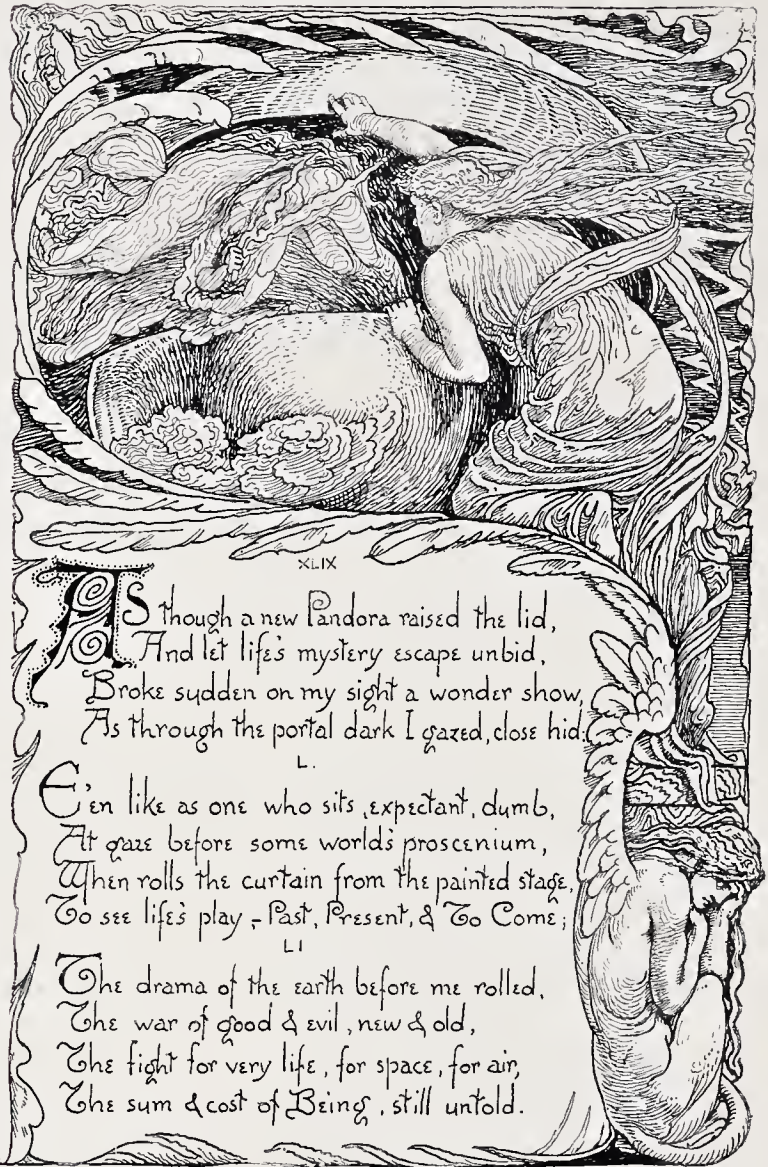 XLIX
As though a new Pandora raised the lid,
And let life's mystery escape unbid,
Broke sudden on my sight a wonder show,
As through the portal dark I gazed, close hid:
L.
E'en like as one who sits, expectant, dumb,
At gaze before some world's proscenium,
When rolls the curtain from the painted stage,
To see life's play - Past, Present, & To Come;
LI
The drama of the earth before me rolled,
The war of good & evil, new & old,
The fight for very life, for space, for air,
The sum & cost of Being, still untold.